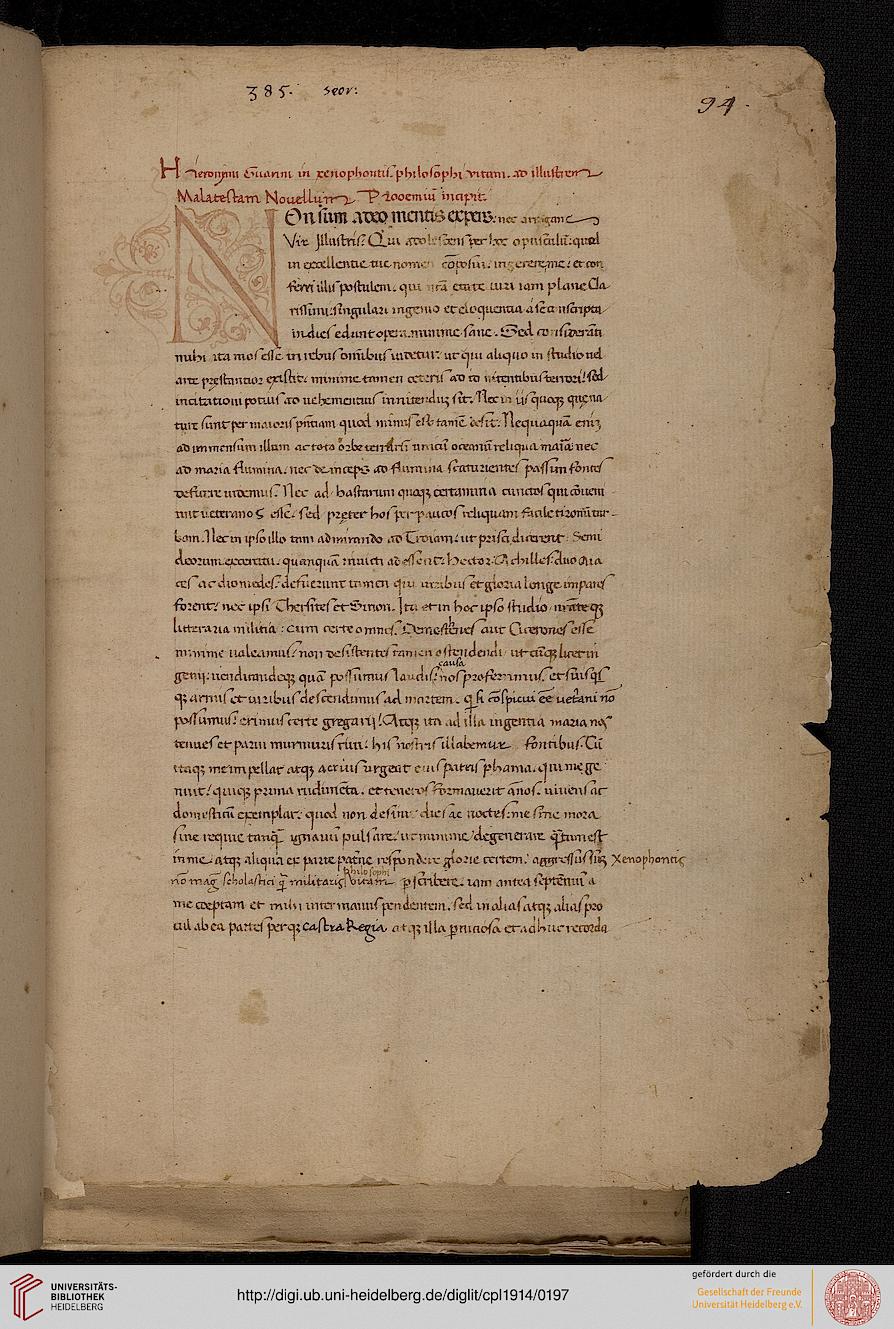 385. seor:
94
Hieronymi Guarini in xenophontis philosophi vitam. ad illustrem
Malatestam Novellum Prooemiū incipit.
NOn sum adeo mentis expers: nec arrogans
Vir Illustris: Qui adolescens per hoc opusculū: quod
in excellentie tue nomen cōposui: ingerere me: et con
ferri illis postulem: qui nr̄a etate viri iam plane Cla
rissimi: singulari ingenio et eloquentia a se conscripta
in dies edunt opera. minime sane. Sed consideranti
mihi ita mos esse in rebus omībus videtur: ut qui aliquo in studio vel
arte pręstantior existit: minime tamen ceteris ad id intentibus terrori: sed
incitationi potius ad vehementius innitenduȝ sit. Nec in iis quoqȝ que na
ture sunt per maioris pn̄tiam quod minus est tamē desit. Nequaquā enīȝ
ad immensum illum ac toto orbe terrarū unicū oceanū reliqua maria: nec
ad maria flumina. nec deinceps ad flumina scaturientes passim fontes
defuere videmus. Nec ad hastarum quoqȝ certamina cunctos qui cōveni
unt veteranos esse. sed pręter hos per paucos reliquam facile tironū tur
bam. Nec in ipso illo tam admirando ad Troiam: ut prisci dicerent Semi
deorum exercitu. quanquā invicti adessent: Hector: Achilles: duo Aia
ces ac diomedes: defuerunt tamen qui viribus et gloria longe impares
forent: nec ipsi Thersites et Sinon. Ita et in hoc ipso studio
litteraria militia: cum certe omnes Demosthenes aut Cicerones esse
minime valeamus: non desistentes tamen ostendendi ut cuiqȝ licet in
genii: venditandeqȝ quā possumus laudis causa nos proferimus. et suis qsqȝ
armis et viribus descendimus ad martem. q si cōspicui eē veterani nō
possumus: erimus certe gregarij! Atqȝ ita ad illa ingentia maria
tenues et parvi murmuris rivi: his nostris illabemur fontibus. Cū
itaqȝ me impellat atqȝ acrius urgeat eius patris phama. qui me ge
nuit: quiqȝ prima rudimēta. et teneros formaverit ānos: vivens ac
domesticū exemplar: quod non desinit dies ac noctes: me sine mora
sine requie tanq̄ ignavū pulsare: ut minime degenerare q̄tum est
in me: atqȝ aliqua ex parte patrię respondere glorie certem: aggressus suȝ Xenophontis
nō mag scholastici q̄ militaris philosophi vitam pscribere. iam antea septēniū a
me coeptam et mihi inter manus pendentem. sed in alias atqȝ alias pro
cul ab ea partes perqȝ castra Regia atqȝ illa pniciosa et adhuc recorda
UNIVERSITÄTS-
BIBLIOTHEK
HEIDELBERG
http://digi.ub.uni-heidelberg.de/diglit/cpl1914/0197
gefördert durch die
Gesellschaft der Freunde
Universität Heidelberg e.V.